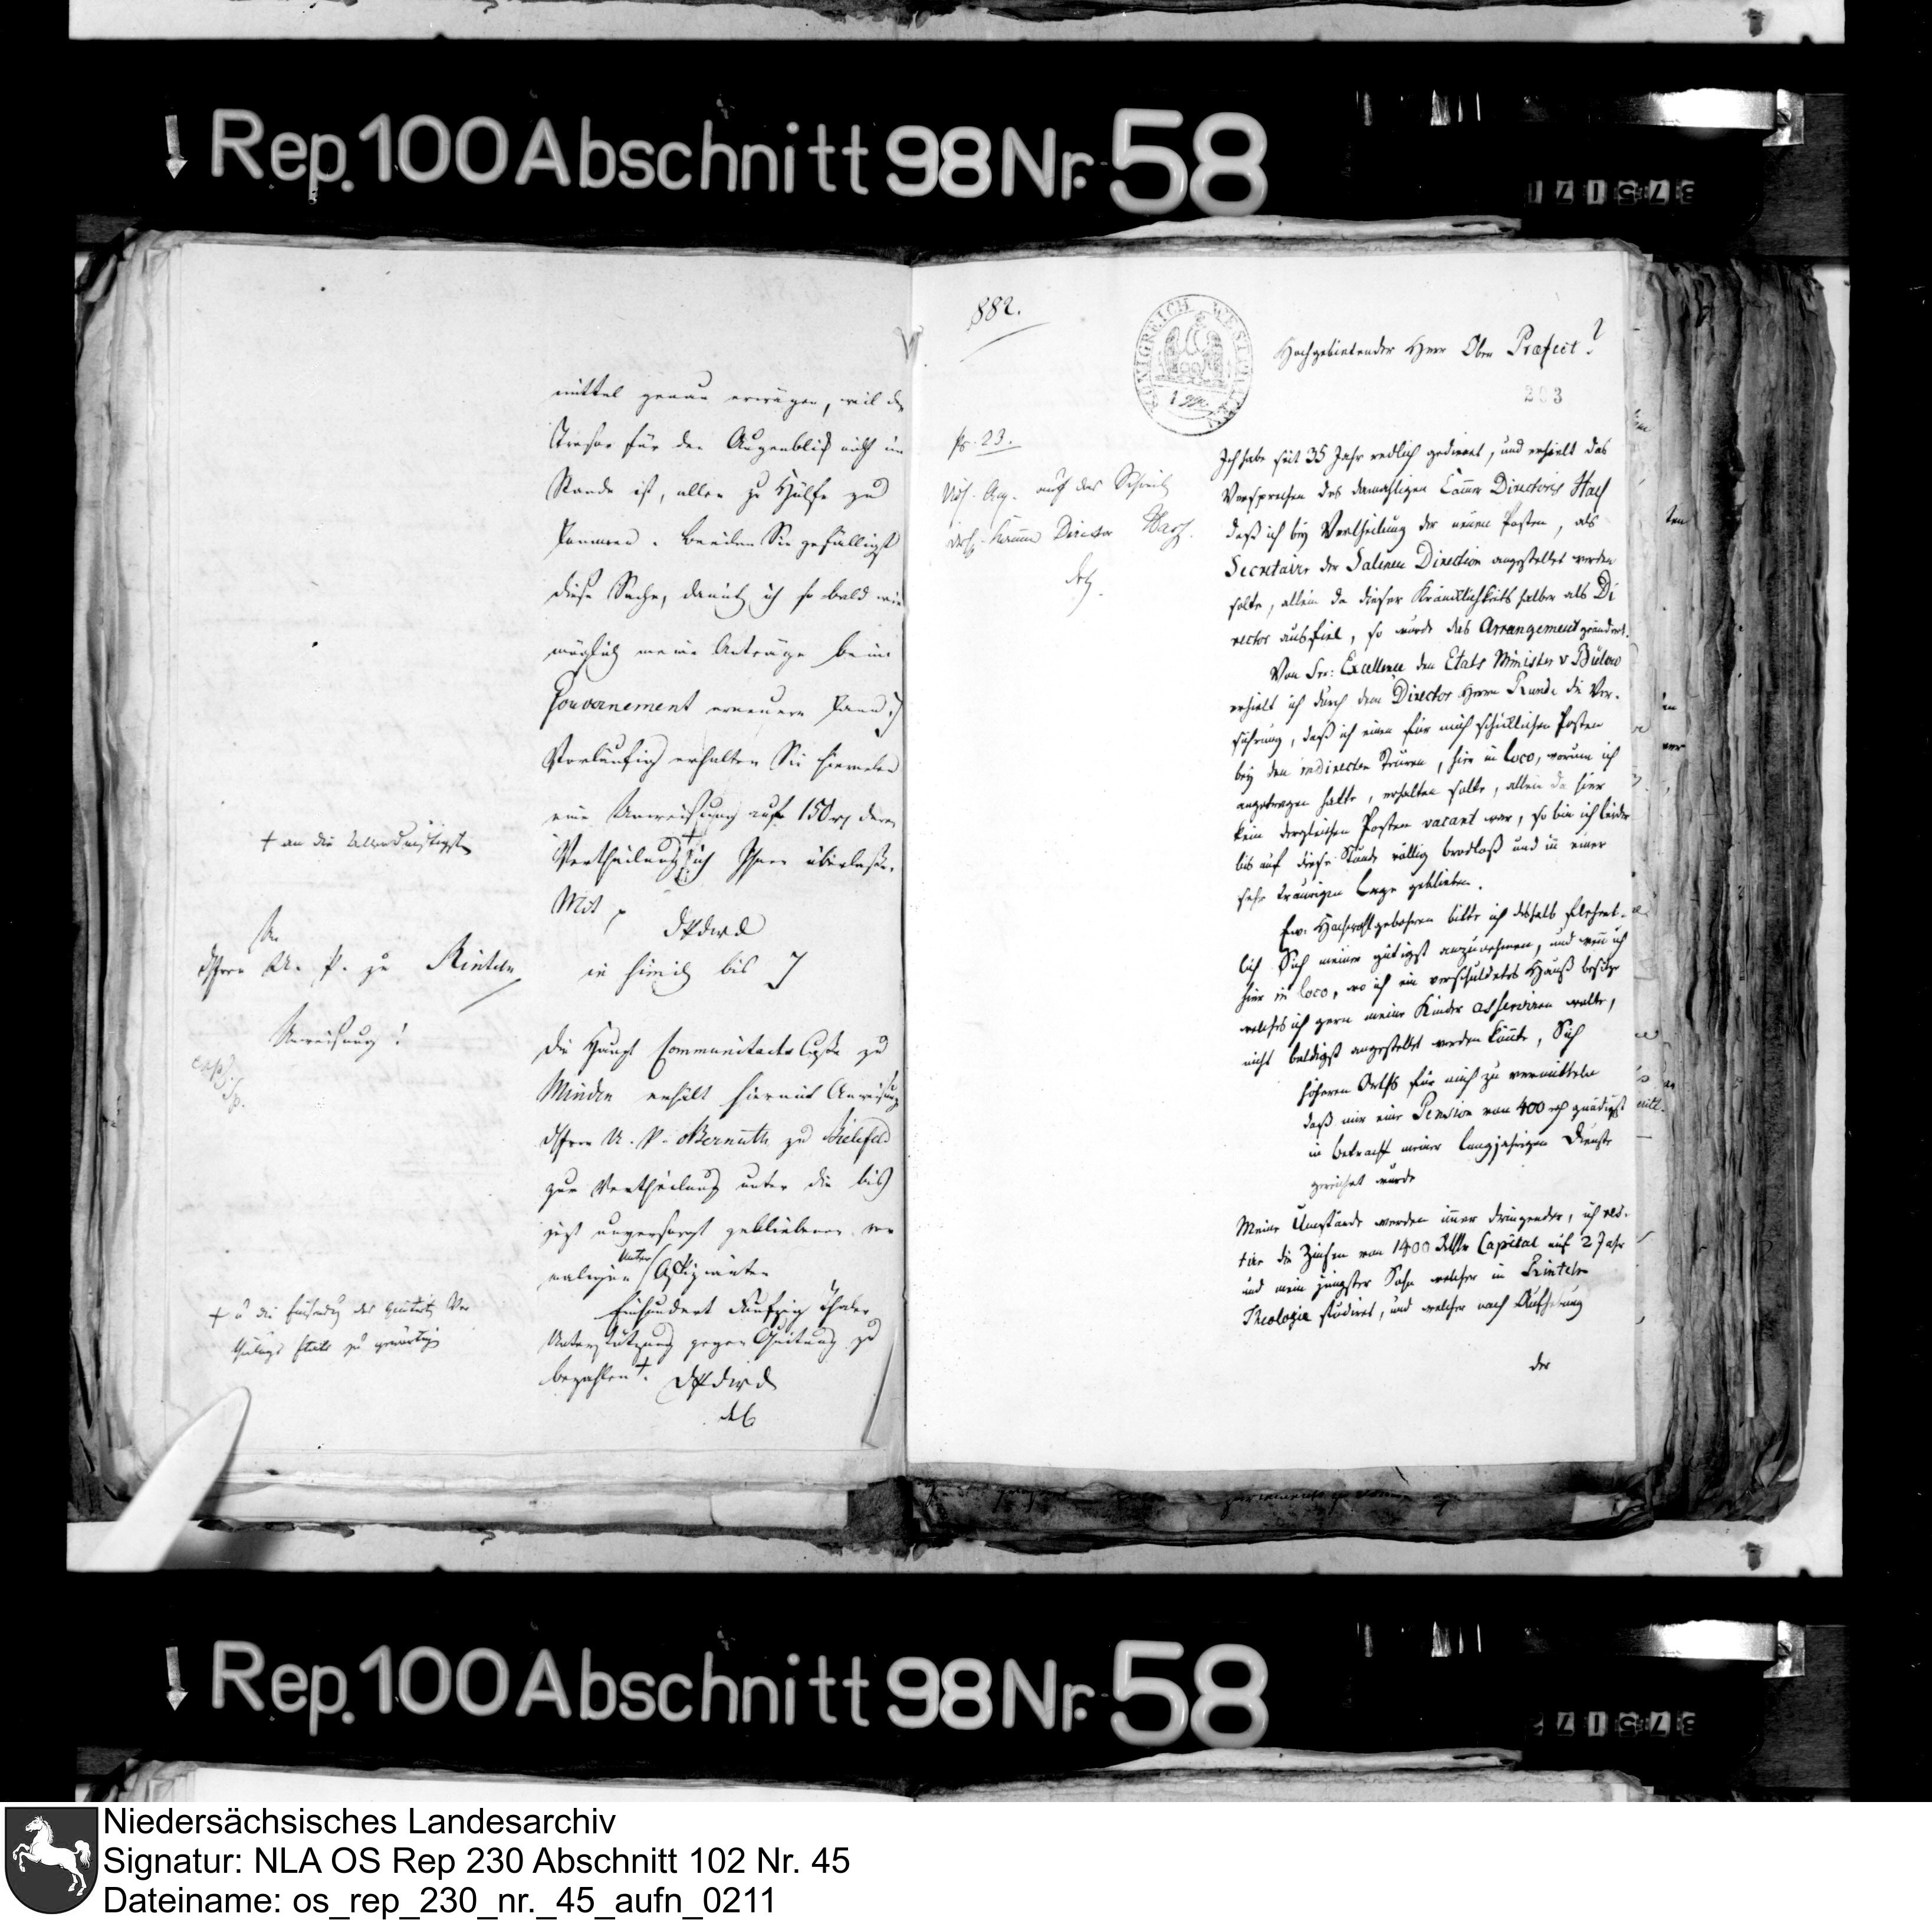 Rep. 100 Abschnitt 98 Nr. 58
375171
mittel genau erwägen, weil der
Tresor für den Augenblick nicht im
Stande ist, allen zu Hülfe zu
kommen. Beeilen Sie gefälligst
diese Sache, damit ich so bald wie
möglich meine Anträge beim
Gouvernement erneuern kann.
Vorläufig erhalten Sie hierneben
eine Anweisung auf 150 rg deren
† an die Allerdürftigsten
Vertheilung † ich Ihnen überlasse.
Mit
An
U. P. zu Rinteln
in bis
Anweisung!
Die Haupt Communitacts Casse zu
Minden erhält hiermit Anweisung
U. P. v Bernuth zu Bielefeld
zur Vertheilung unter die bis
jetzt unversorgt gebliebenen
Unter
Einhundert Fünfzig Thaler
Unterstützung gegen Quitung zu
bezahlen †.
882.
KÖNIGREICH WESTPHALEN
Hochgebietender Herr Ober Præfect!
203
ps. 23.
auf das
Director Hass.
Ich habe seit 35 Jahr redlich gedienet, und erhielt das
Versprechen des damahligen Cammer Directoris Hass
daß ich bey Vertheilung der neuen Posten, als
Secretaire der Salinen Direction angestellet werden
solte, allein da dieser Kräncklichkeits halber als Di
rector ausfiel, so wurde das Arrangement geändert.
Von Sr: Excellence den Etats Minister v Bülow
erhielt ich durch dem Director Herrn Kunde die Ver-
sichrung, daß ich einen für mich schicklichen Posten
bey den indirecten Steuren, hier in loco, worum ich
angetragen hatte, erhalten solte, allein da hier
kein dergleichen Posten vacant war, so bin ich leider
bis auf diese Stunde völlig brodloß und in einer
sehr traurigen Lage geblieben.
Ew. Hochwohlgebohren bitte ich deshalb flehent-
lich Sich meiner gütigst anzunehmen, und wenn ich
hier in loco, wo ich ein verschuldetes Hauß besitze
welches ich gern meine Kinder asserviren wolte,
nicht baldigst angestellet werden könnte, Sich
höheren Orths für mich zu vermitteln
daß mir eine Pension von 400 rg gnädigst
in betracht meiner langjährigen Dienste
gereichet würde
Meine Umstände werden immer dringender, ich res-
tire die Zinsen von 1400 Capital auf 2 Jahr
und mein jüngster Sohn welcher in Rinteln
Theologie studiret, und welcher nach Aufhebung
der
Rep. 100 Abschnitt 98 Nr. 58
Niedersächsisches Landesarchiv
Signatur: NLA OS Rep 230 Abschnitt 102 Nr. 45
Dateiname: os_rep_230_nr._45_aufn_0211